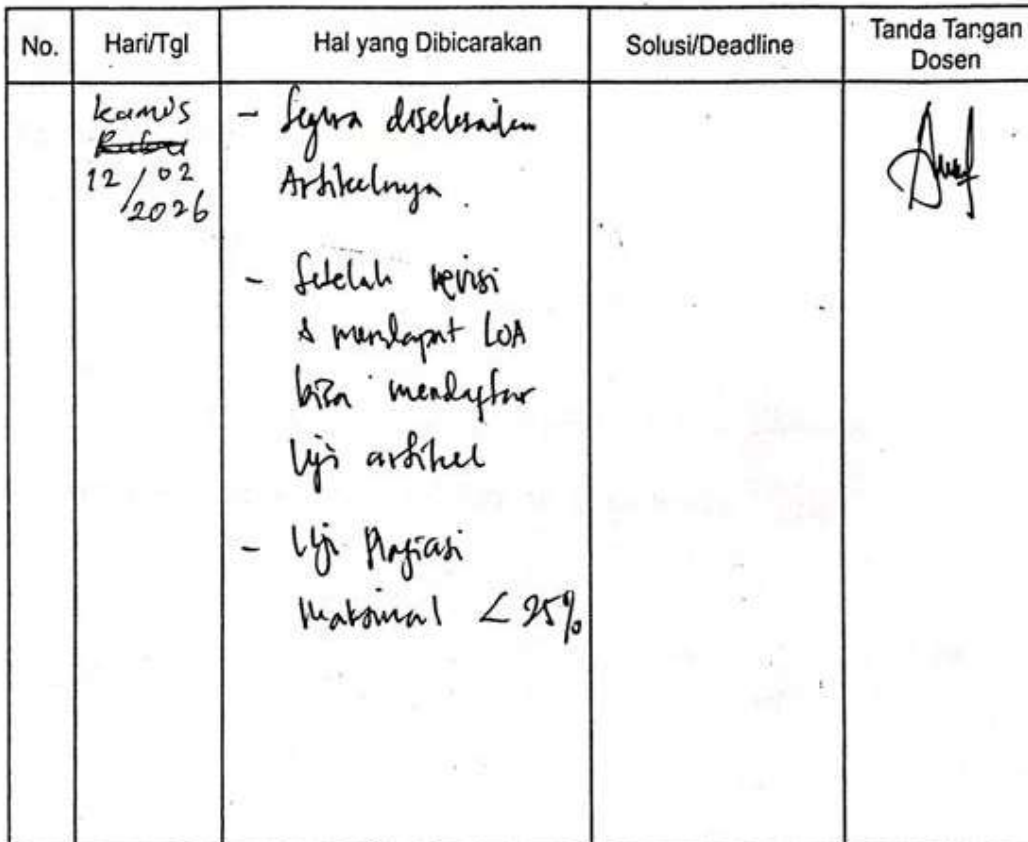 No. Hari/Tgl Hal yang Dibicarakan Solusi/Deadline Tanda Tangan
Dosen
Kamis
Rabu
12/02
2026
- Segera diselesaikan
Artikelnya
- Setelah revisi
& mendapat LOA
bisa mendaftar
Uji artikel
- Uji Plagiasi
Maksimal < 25%